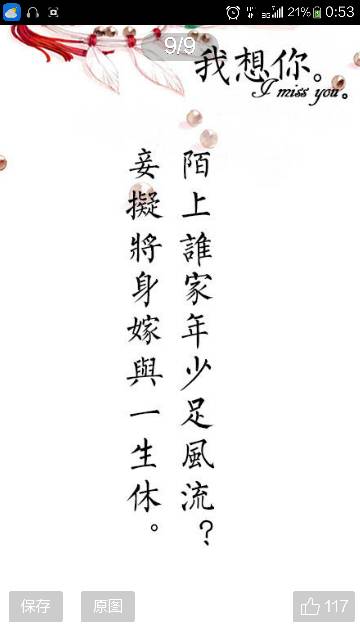 21% 0:53
9/9
我想你。
I miss you。
陌上誰家年少足風流？
妾擬將身嫁與一生休。
保存
原图
117